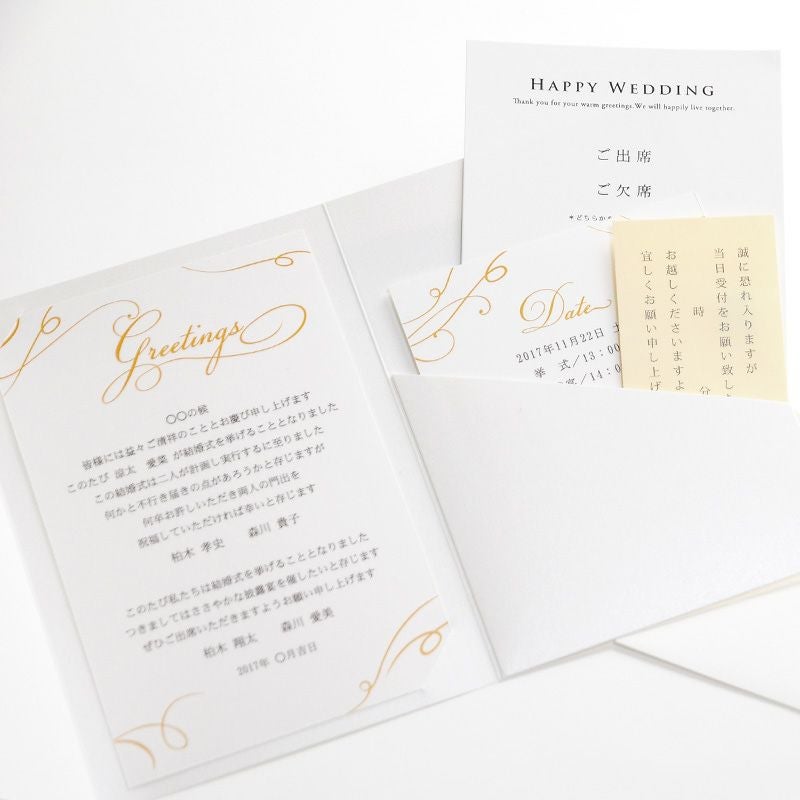 Greetings
〇〇の候
皆様には益々ご清祥のこととお慶び申し上げます
このたび 涼太 愛菜 が結婚式を挙げることとなりました
この結婚式は二人が計画し実行するに至りました
何かと不行き届きの点があろうかと存じますが
何卒お許しいただき両人の門出を
祝福していただければ幸いと存じます
柏木 孝史 森川 貴子
このたび私たちは結婚式を挙げることとなりました
つきましてはささやかな披露宴を催したいと存じます
ぜひご出席いただきますようお願い申し上げます
柏木 翔太 森川 愛美
2017年 〇月吉日
HAPPY WEDDING
Thank you for your warm greetings.We will happily live together.
ご出席
ご欠席
*どちらか
Date
2017年11月22日
挙 式/13:00
宴/14:0
誠に恐れ入りますが
当日受付をお願い致し
時 分
お越しくださいますよ
宜しくお願い申し上げ